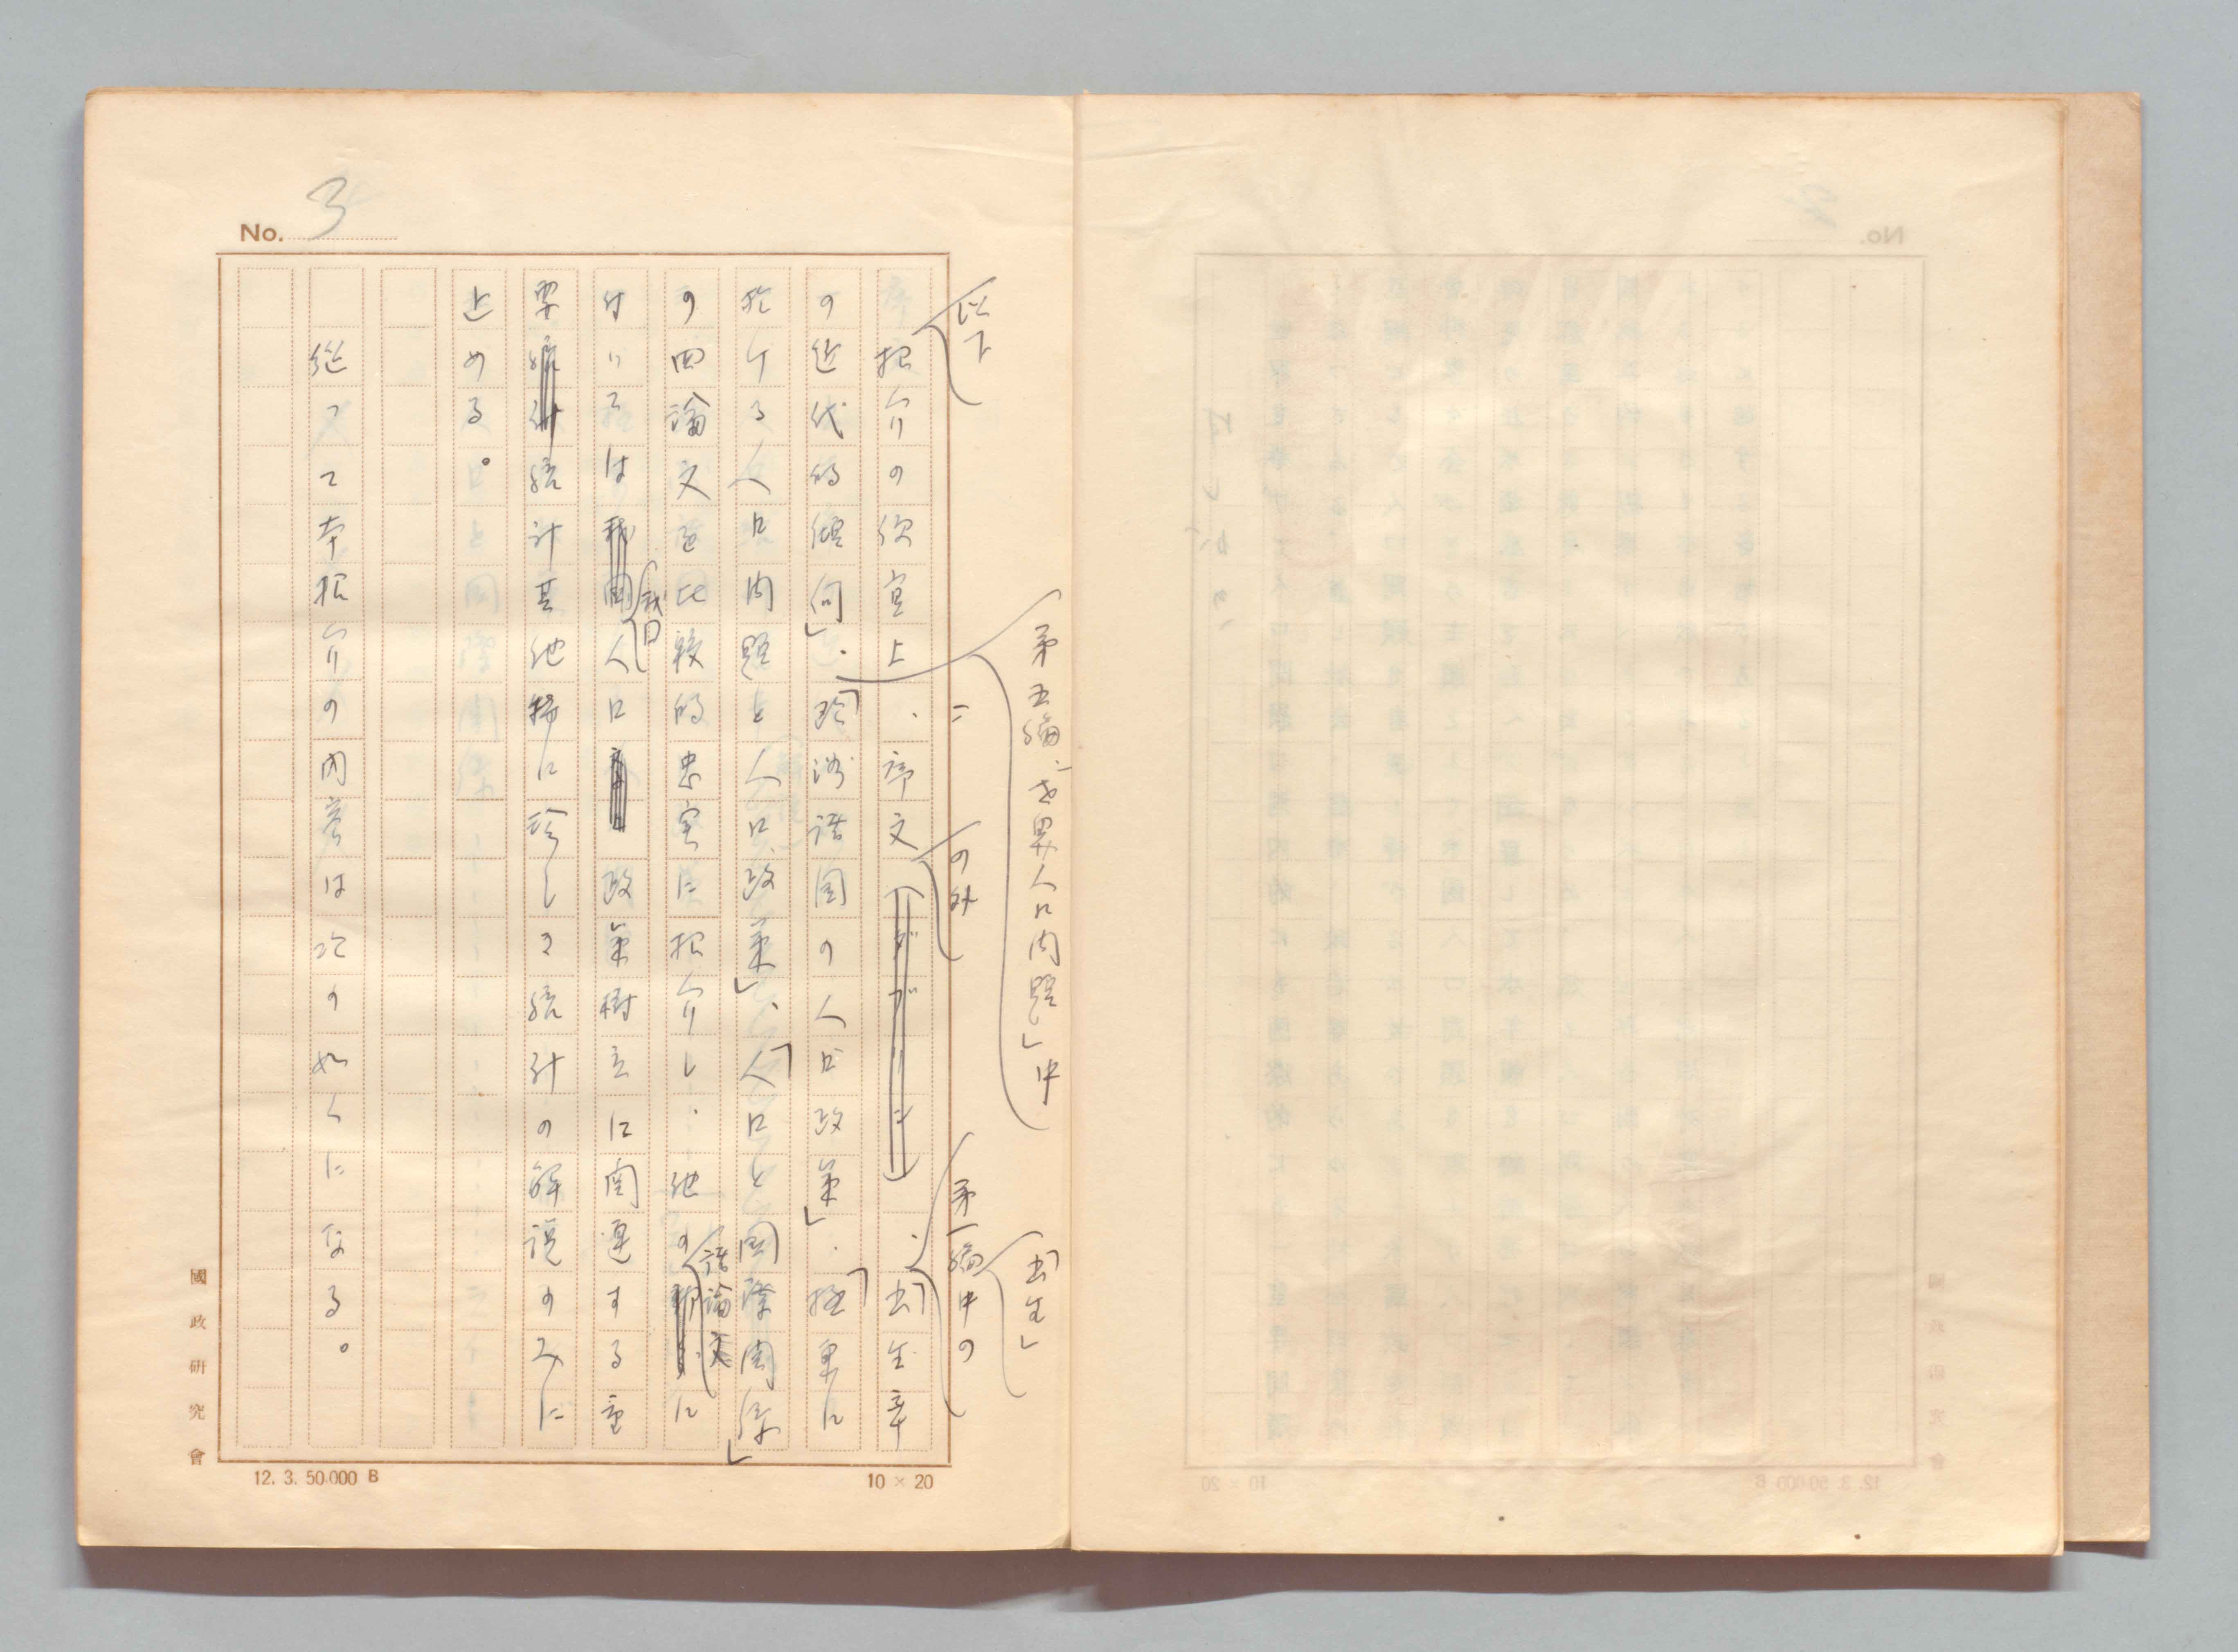 第五編、「世界人口問題」中
「出生」
以下
の外
第一編中の
紹介の便宜上、序文、「出生率
の近代的傾向」、「欧洲諸国の人口政策」、「極東に
於ける人口問題と人口政策」、「人口と国際関係」
の四論文を比較的忠実に紹介し、他の諸論文に
付いては我国人口政策樹立に関連する重
要統計其他特に珍しき統計の解説のみに
止める。
従つて本紹介の内容は次の如くになる。
No. 3
國政研究會
12. 3. 50.000 B
10 × 20